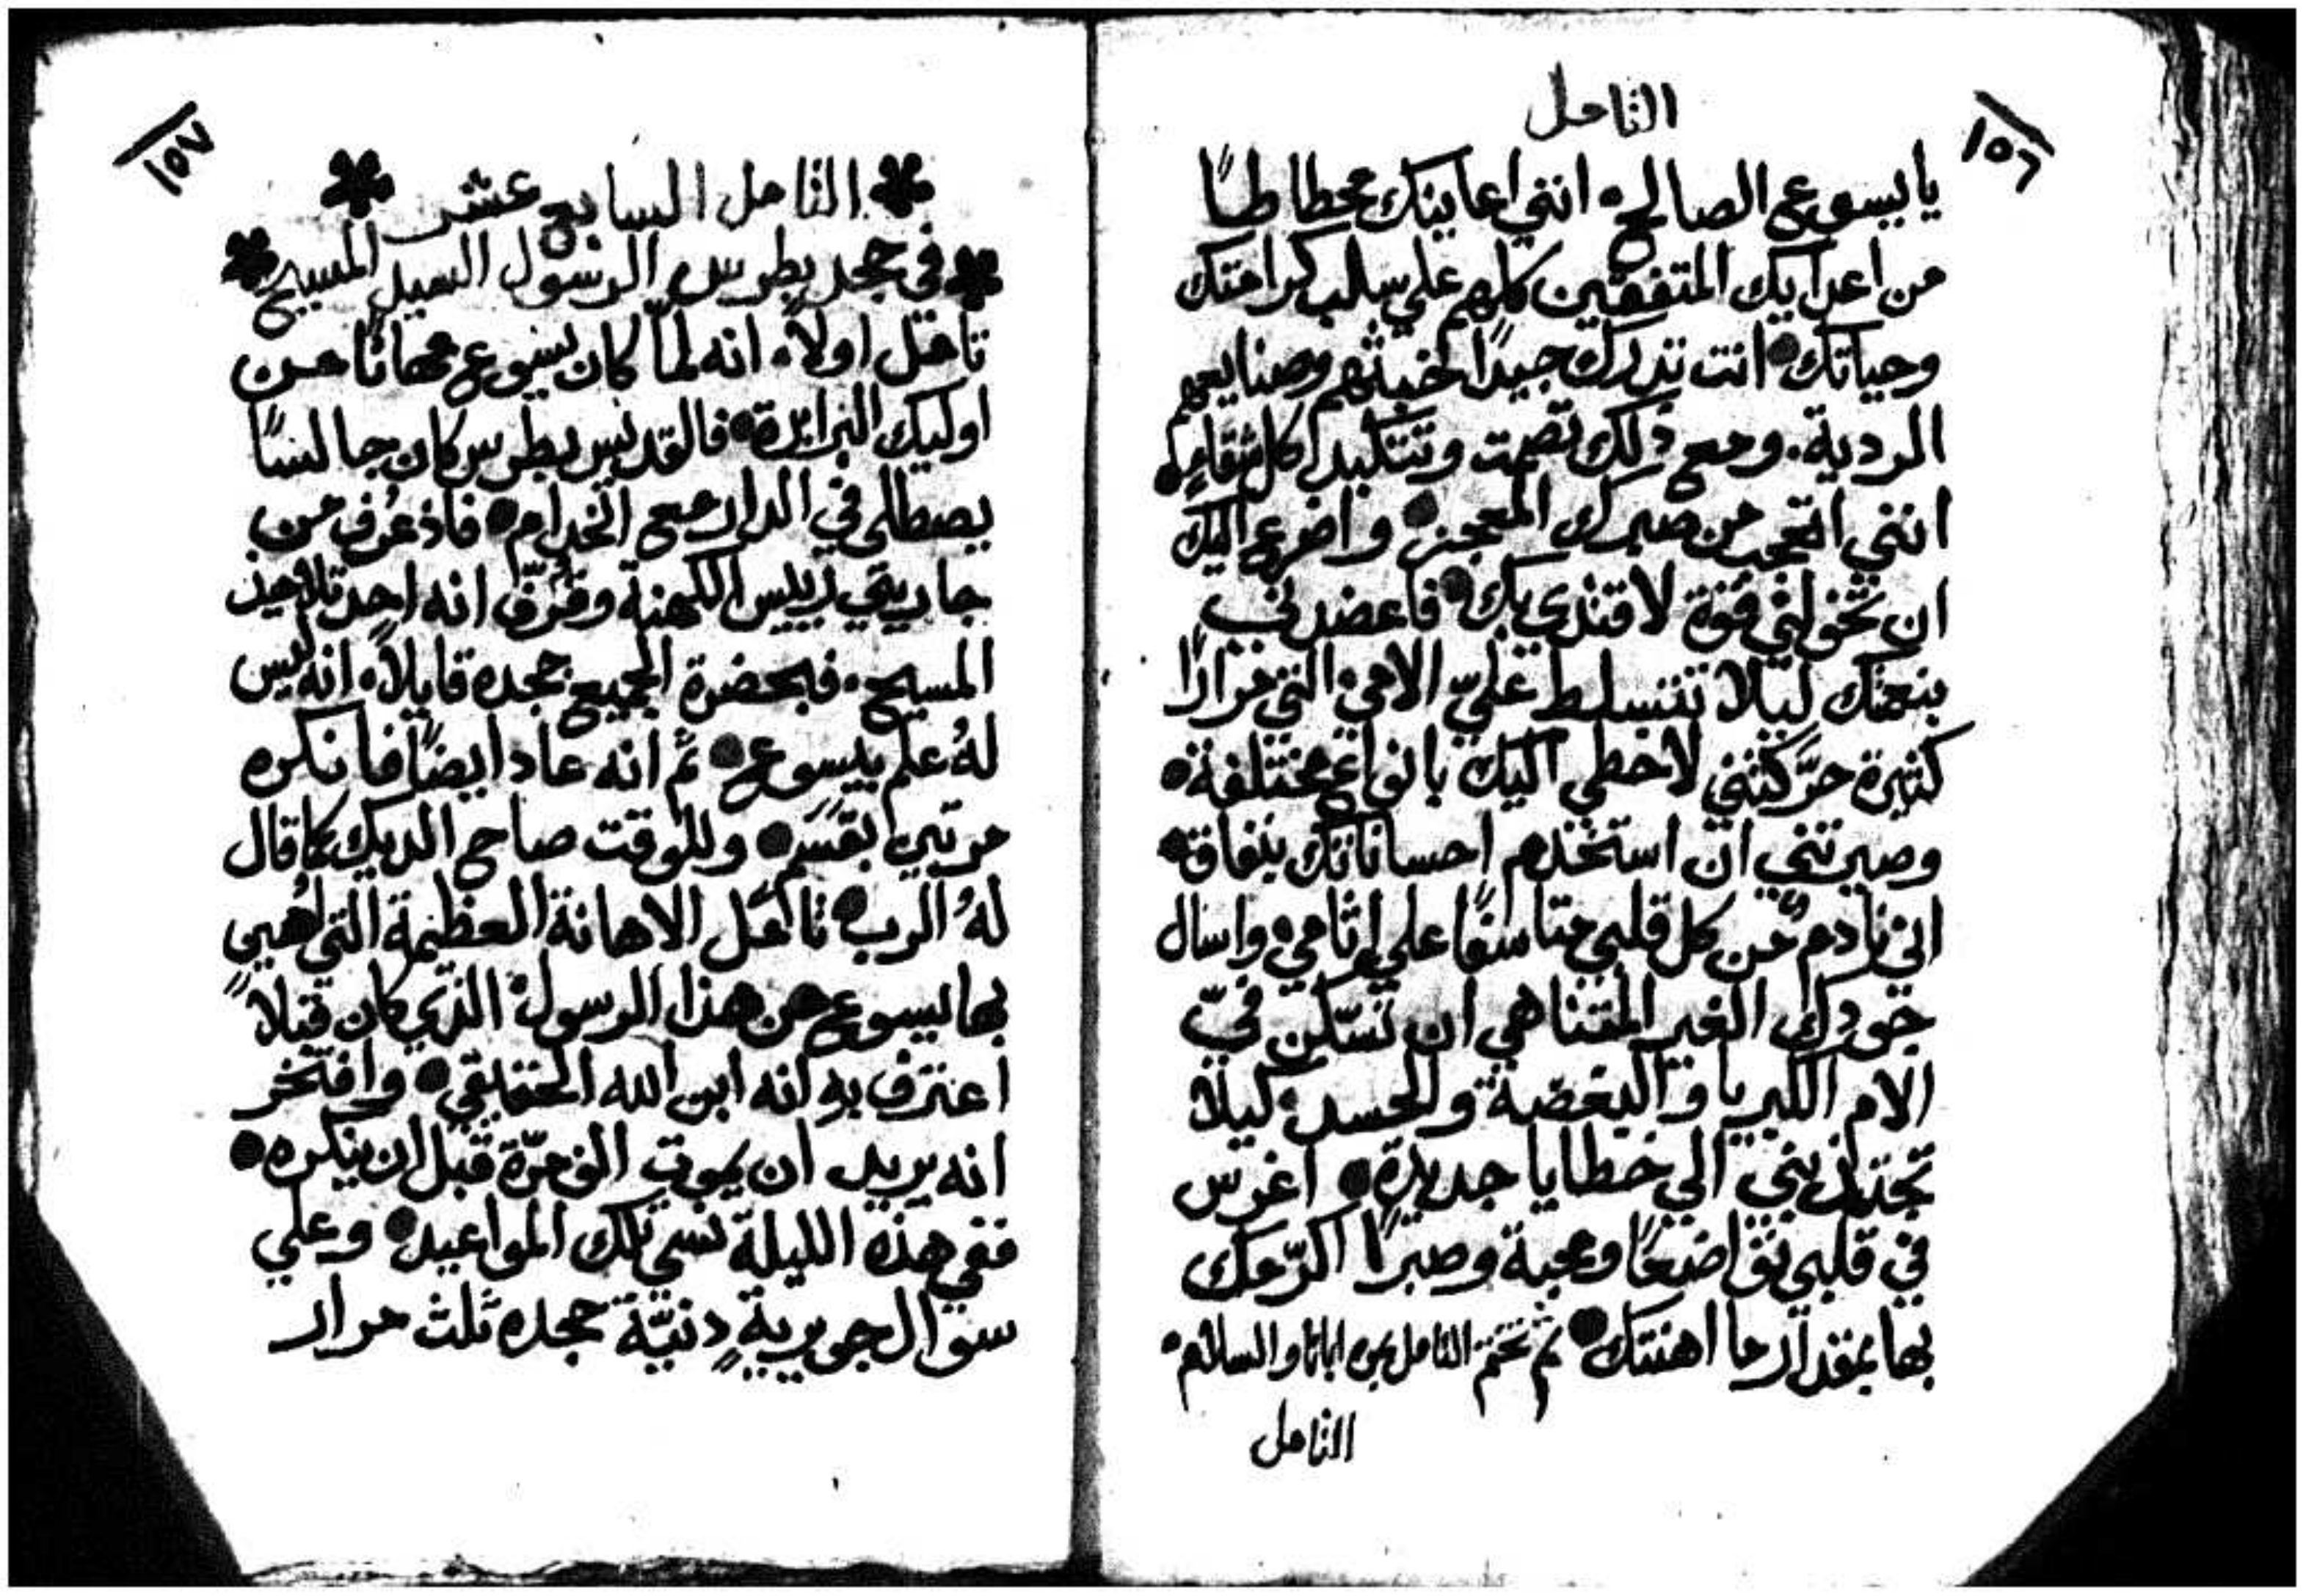 التامل
١٥٦
يا يسوع الصالح. انني اعاينك محطاطًا
من اعدايك المتفقين كلهم علي سلب كرامتك
وحياتك. انت تدرك جيدًا خبثهم وصنايعهم
الردية. ومع ذلك تصمت وتتكبد كل
انني اتعجب من صبرك المعجز. واضرع اليك
ان تخولني قوة لاقتدي بك. فاعضدني
بنعمتك ليلا تتسلط عليّ الامي. التي مرارًا
كثيرة حرَّكتني لاخطي اليك بانواع مختلفة.
وصيرتني ان استخدم احساناتك بنفاق.
اني نادمٌ من كل قلبي متاسفًا علي اثامي. واسال
جودك الغير المتناهي ان تسّكن فيّ
الام الكبريا والبغضة والحسد. ليلا
تجتذبني الي خطايا جديدة. اغرس
في قلبي تواضعًا ومحبة وصبرًا اكرّمك
بها بمقدار ما اهنتك. ثم تختم التامل بمرة ابانا والسلام.
التامل
١٥٧
التامل السابع عشر
في جحد بطرس الرسول السيد المسيح
تامل اولاً. انه لمّا كان يسوع مهانًا من
اوليك البرابرة. فالقديس بطرس كان جالسًا
يصطلي في الدار مع الخدام. فاذ عُرف من
جاريتي رييس الكهنة وقُرّف انه احد تلاميذ
المسيح. فبحضرة الجميع جحده قايلاً. انه ليس
لهُ علم بيسوع. ثم انه عاد ايضًا فانكره
مرتين بقَسَمٍ. وللوقت صاح الديك كما قال
لهُ الرب. تامل الاهانة العظيمة التي اُهين
بها يسوع من هذا الرسول. الذي كان قبلاً
اعترف به انه ابن الله الحقيقي. وافتخر
انه يريد ان يموت الف مرّة قبل ان ينكره.
ففي هذه الليلة نسي تلك المواعيد. وعلي
سوال جويريةٍ دنيّة جحده ثلث مرار